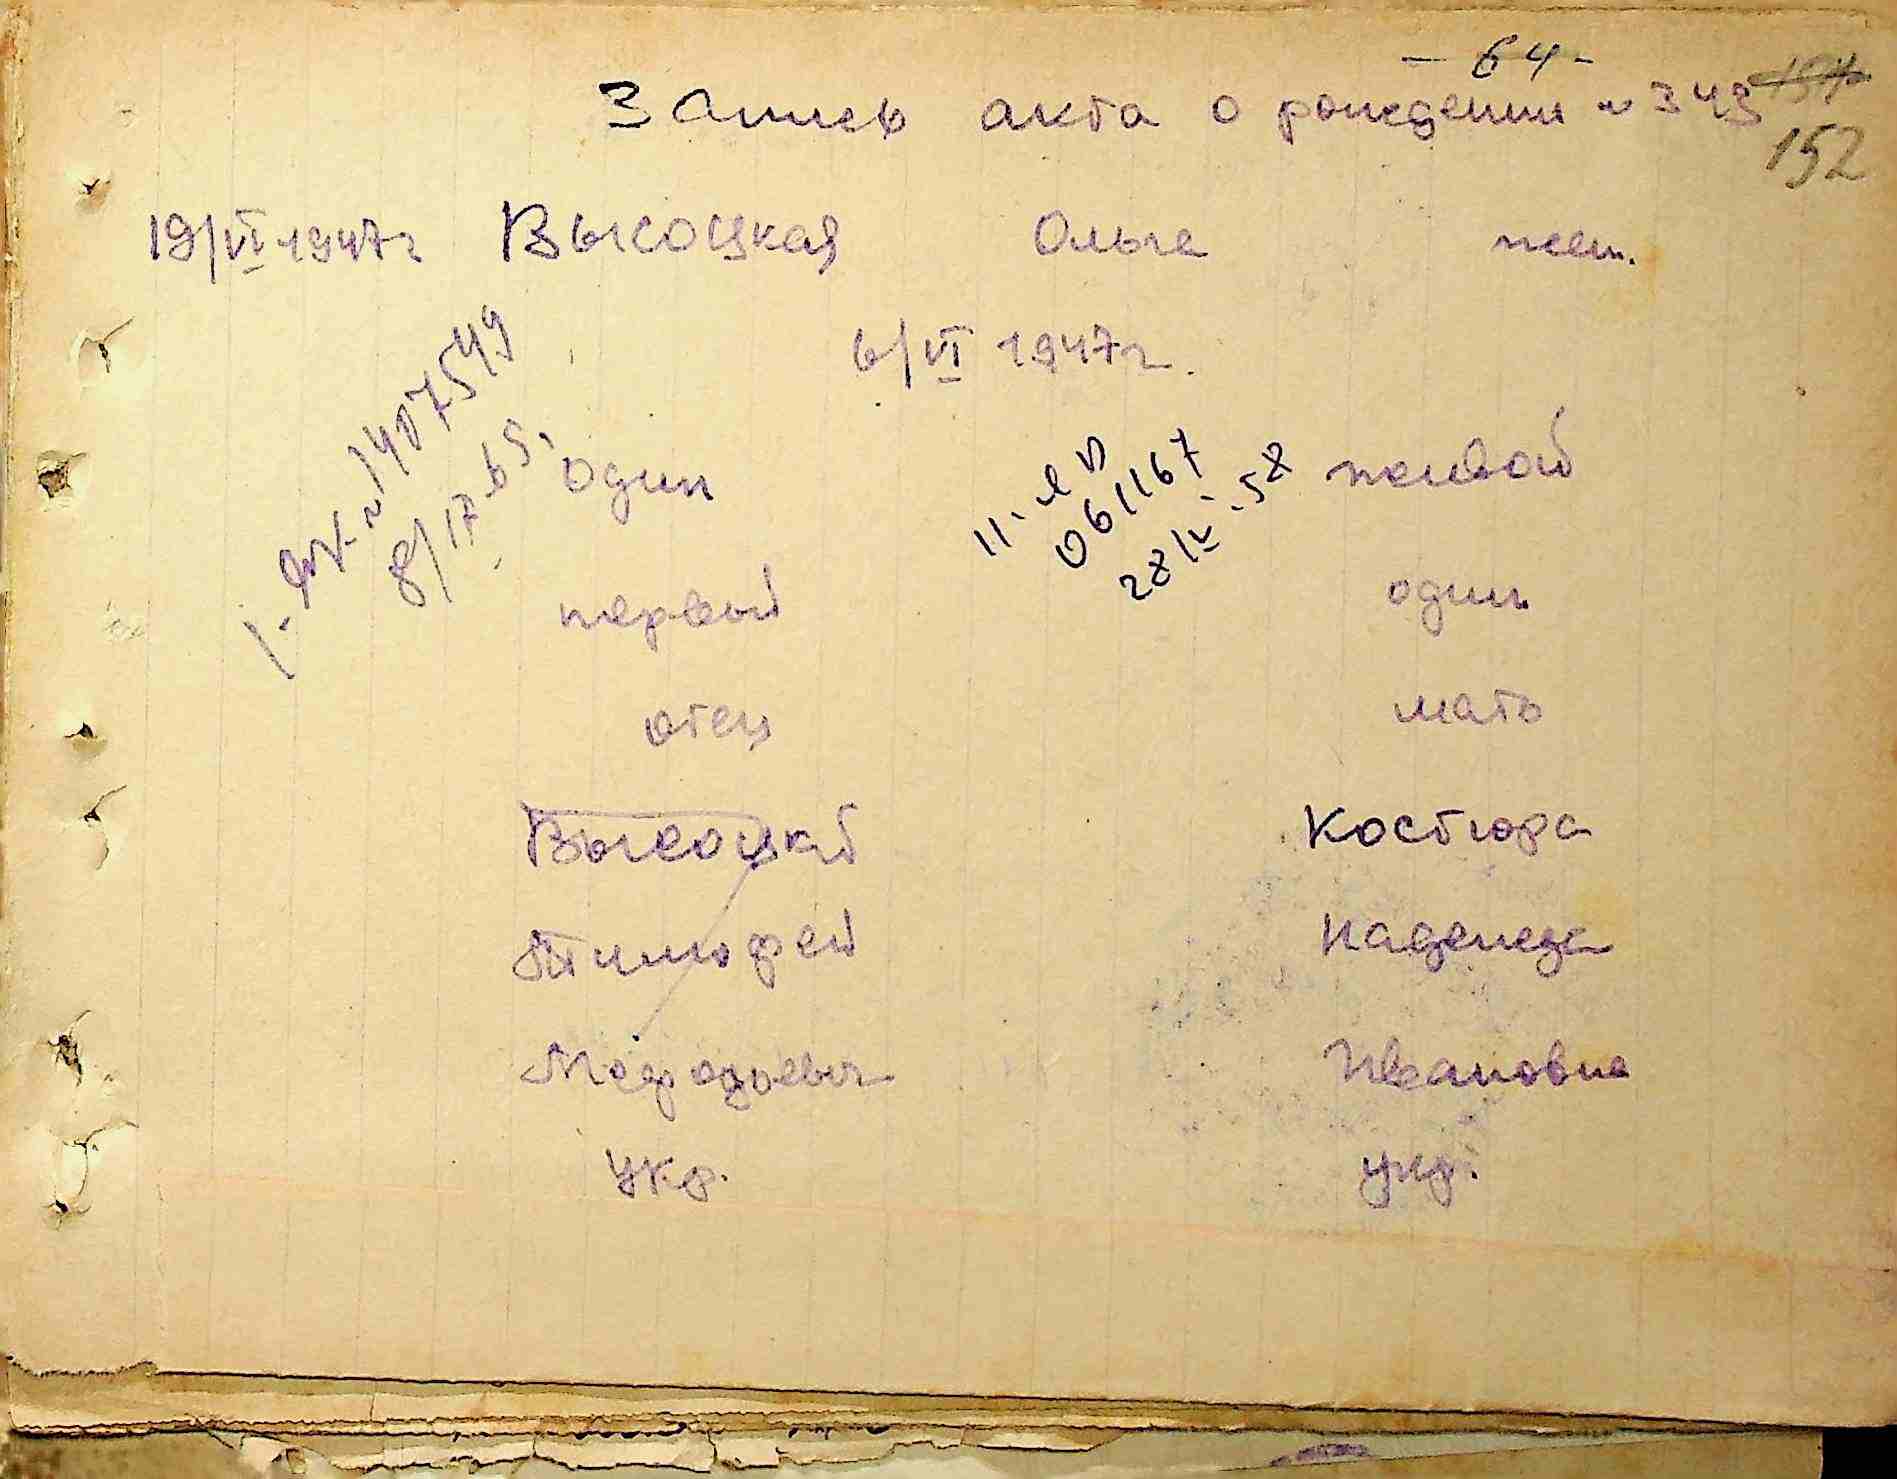 - 64 -
Запись акта о рождении № 343
152
19/VI 1947 г Высоцкая Ольга жен.
6/VI 1947 г.
№ 1407549
один
061167
живой
первый один
отец мать
Высоцкий Костюра
Тимофей Надежда
Мефодьевич Ивановна
укр. укр.